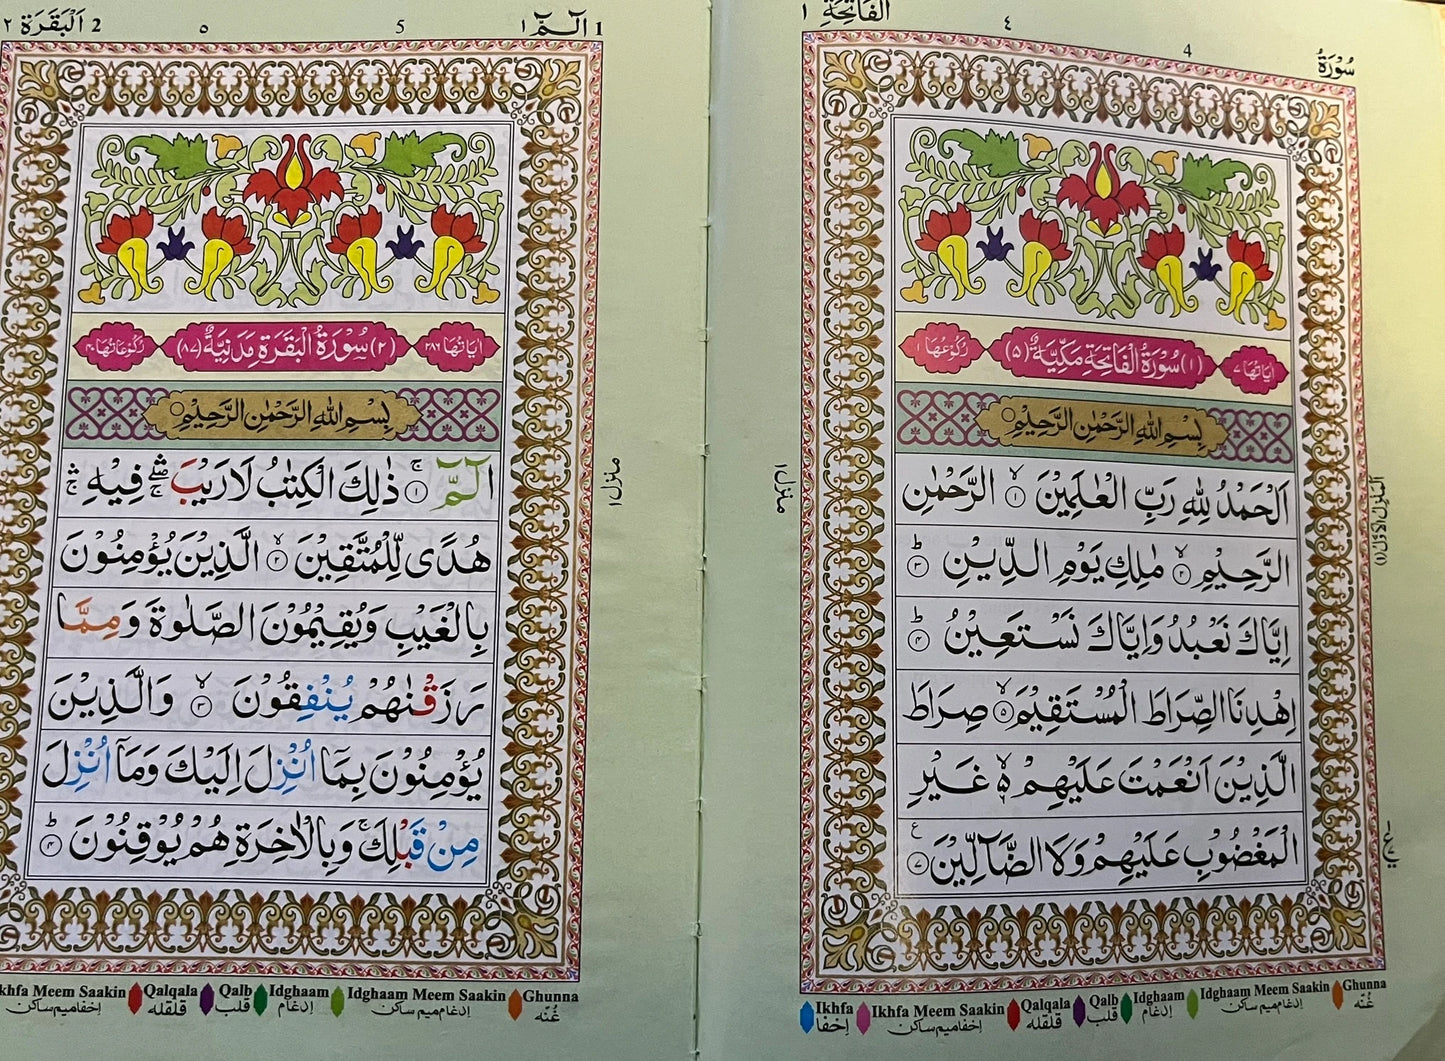 سُوْرَةُ
4
٤
اَلْفَاتِحَةِ ١
اٰيَاتُهَا ٧
(١) سُوْرَةُ الْفَاتِحَةِ مَكِّيَّةٌ (٥)
رُكُوْعُهَا ١
بِسْمِ اللهِ الرَّحْمٰنِ الرَّحِيْمِ ○
اَلْحَمْدُ لِلّٰهِ رَبِّ الْعٰلَمِيْنَ ۙ ١ الرَّحْمٰنِ
الرَّحِيْمِ ۙ ٢ مٰلِكِ يَوْمِ الدِّيْنِ ؕ ٣
اِيَّاكَ نَعْبُدُ وَاِيَّاكَ نَسْتَعِيْنُ ؕ ٤
اِهْدِنَا الصِّرَاطَ الْمُسْتَقِيْمَ ۙ ٥ صِرَاطَ
الَّذِيْنَ اَنْعَمْتَ عَلَيْهِمْ ۙ ٦ غَيْرِ
الْمَغْضُوْبِ عَلَيْهِمْ وَلَا الضَّآلِّيْنَ ٧ ع
اَلْمَنْزِلُ الْاَوَّلُ (١)
منزل ١
Ikhfa Ikhfa Meem Saakin Qalqala Qalb Idghaam Idghaam Meem Saakin Ghunna
اِخفا اِخفامیم ساکن قلقله قلب اِدغام اِدغام میم ساکن غُنّه
1 الٓمّٓ ١
5
٥
2 اَلْبَقَرَة ٢
اٰيَاتُهَا ٢٨٦
(٢) سُوْرَةُ الْبَقَرَةِ مَدَنِيَّةٌ (٨٧)
رُكُوْعَاتُهَا ٤٠
بِسْمِ اللهِ الرَّحْمٰنِ الرَّحِيْمِ ○
الٓمّٓ ۚ ١ ذٰلِكَ الْكِتٰبُ لَا رَيْبَ ۛۖۚ فِيْهِ ۛۚ
هُدًى لِّلْمُتَّقِيْنَ ۙ ٢ الَّذِيْنَ يُؤْمِنُوْنَ
بِالْغَيْبِ وَيُقِيْمُوْنَ الصَّلٰوةَ وَمِمَّا
رَزَقْنٰهُمْ يُنْفِقُوْنَ ۙ ٣ وَالَّذِيْنَ
يُؤْمِنُوْنَ بِمَآ اُنْزِلَ اِلَيْكَ وَمَآ اُنْزِلَ
مِنْ قَبْلِكَ ۚ وَبِالْاٰخِرَةِ هُمْ يُوْقِنُوْنَ ؕ ٤
منزل ١
khfa Meem Saakin Qalqala Qalb Idghaam Idghaam Meem Saakin Ghunna
اِخفامیم ساکن قلقله قلب اِدغام اِدغام میم ساکن غُنّه